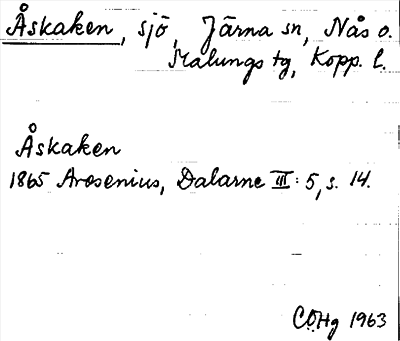 Åskaken, sjö, Järna sn, Nås o.
Malungs tg, Kopp. l.
Åskaken
1865 Arosenius, Dalarne III: 5, s. 14.
COHg 1963